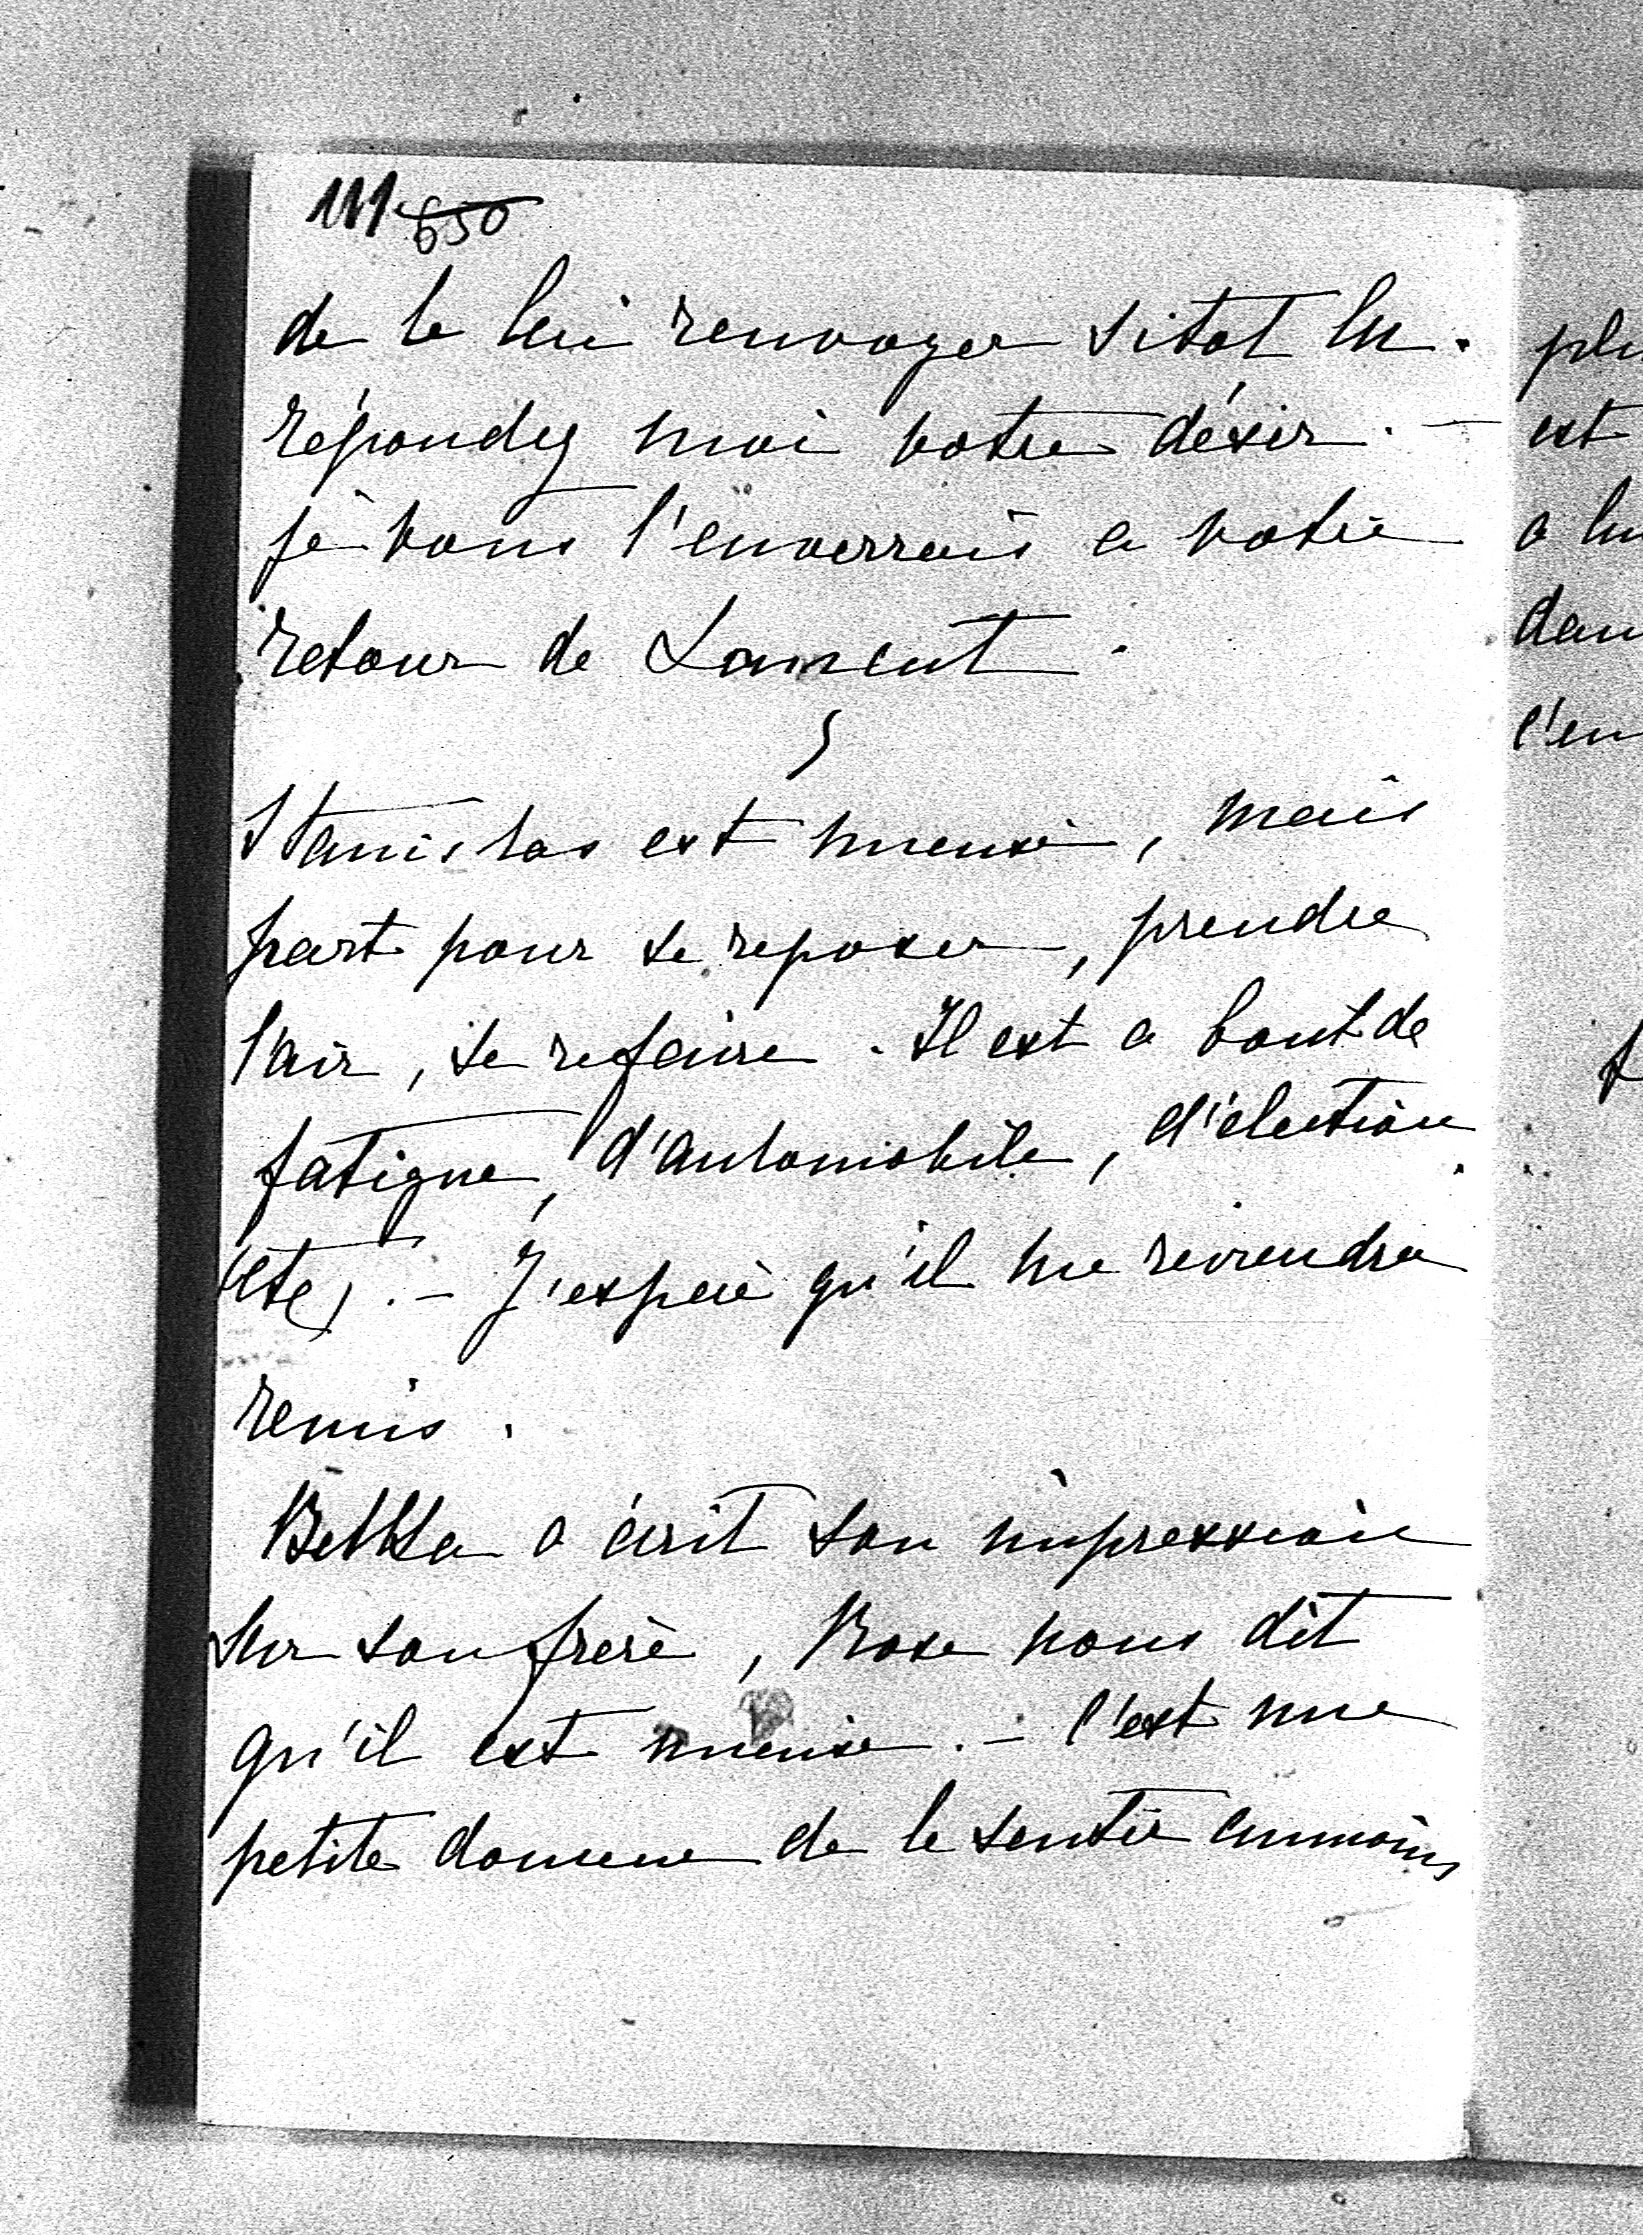 111 650
de le lui renvoyer sitot lu.
répondez moi votre désir. —
je vous l'enverrais a votre
retour de
Stanislas est mieux, mais
part pour se reposer, prendre
l'air, se refaire. Il est a bout de
fatigue, d'automobile, d'élection
(etc). — J'espère qu'il me reviendra
remis.
a écrit son impression
sur son frère, Rose nous dit
qu'il est mieux. — C'est une
petite douceur de le sentir aumoins
plu
est
a lu
dan
l'en